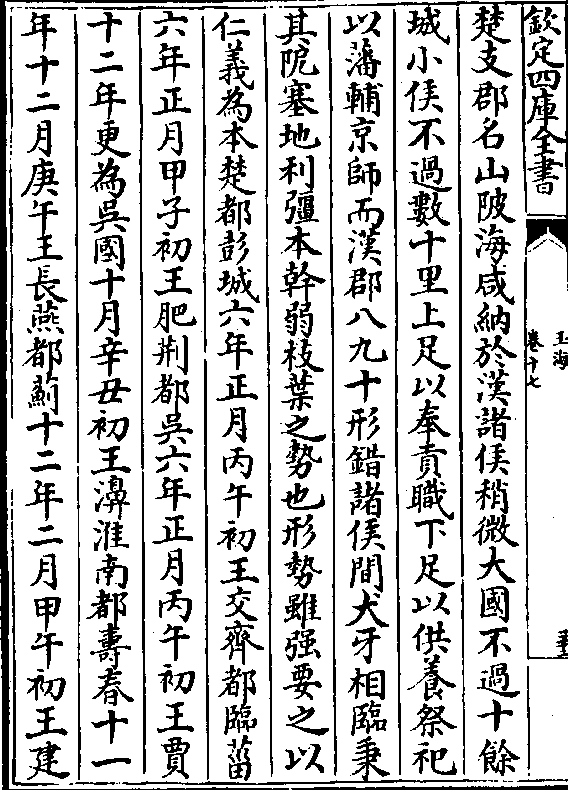 欽定四庫全書
玉海
卷十七
楚支郡名山陂海咸納於漢諸侯稍微大國不過十餘
城小侯不過數十里上足以奉貢職下足以供養祭祀
以藩輔京師而漢郡八九十形錯諸侯間犬牙相臨秉
其阸塞地利彊本幹弱枝葉之勢也形勢雖强要之以
仁義為本楚都彭城六年正月丙午初王交齊都臨菑
六年正月甲子初王肥荆都吳六年正月丙午初王賈
十二年更為吳國十月辛丑初王濞淮南都壽春十一
年十二月庚午王長燕都薊十二年二月甲午初王建